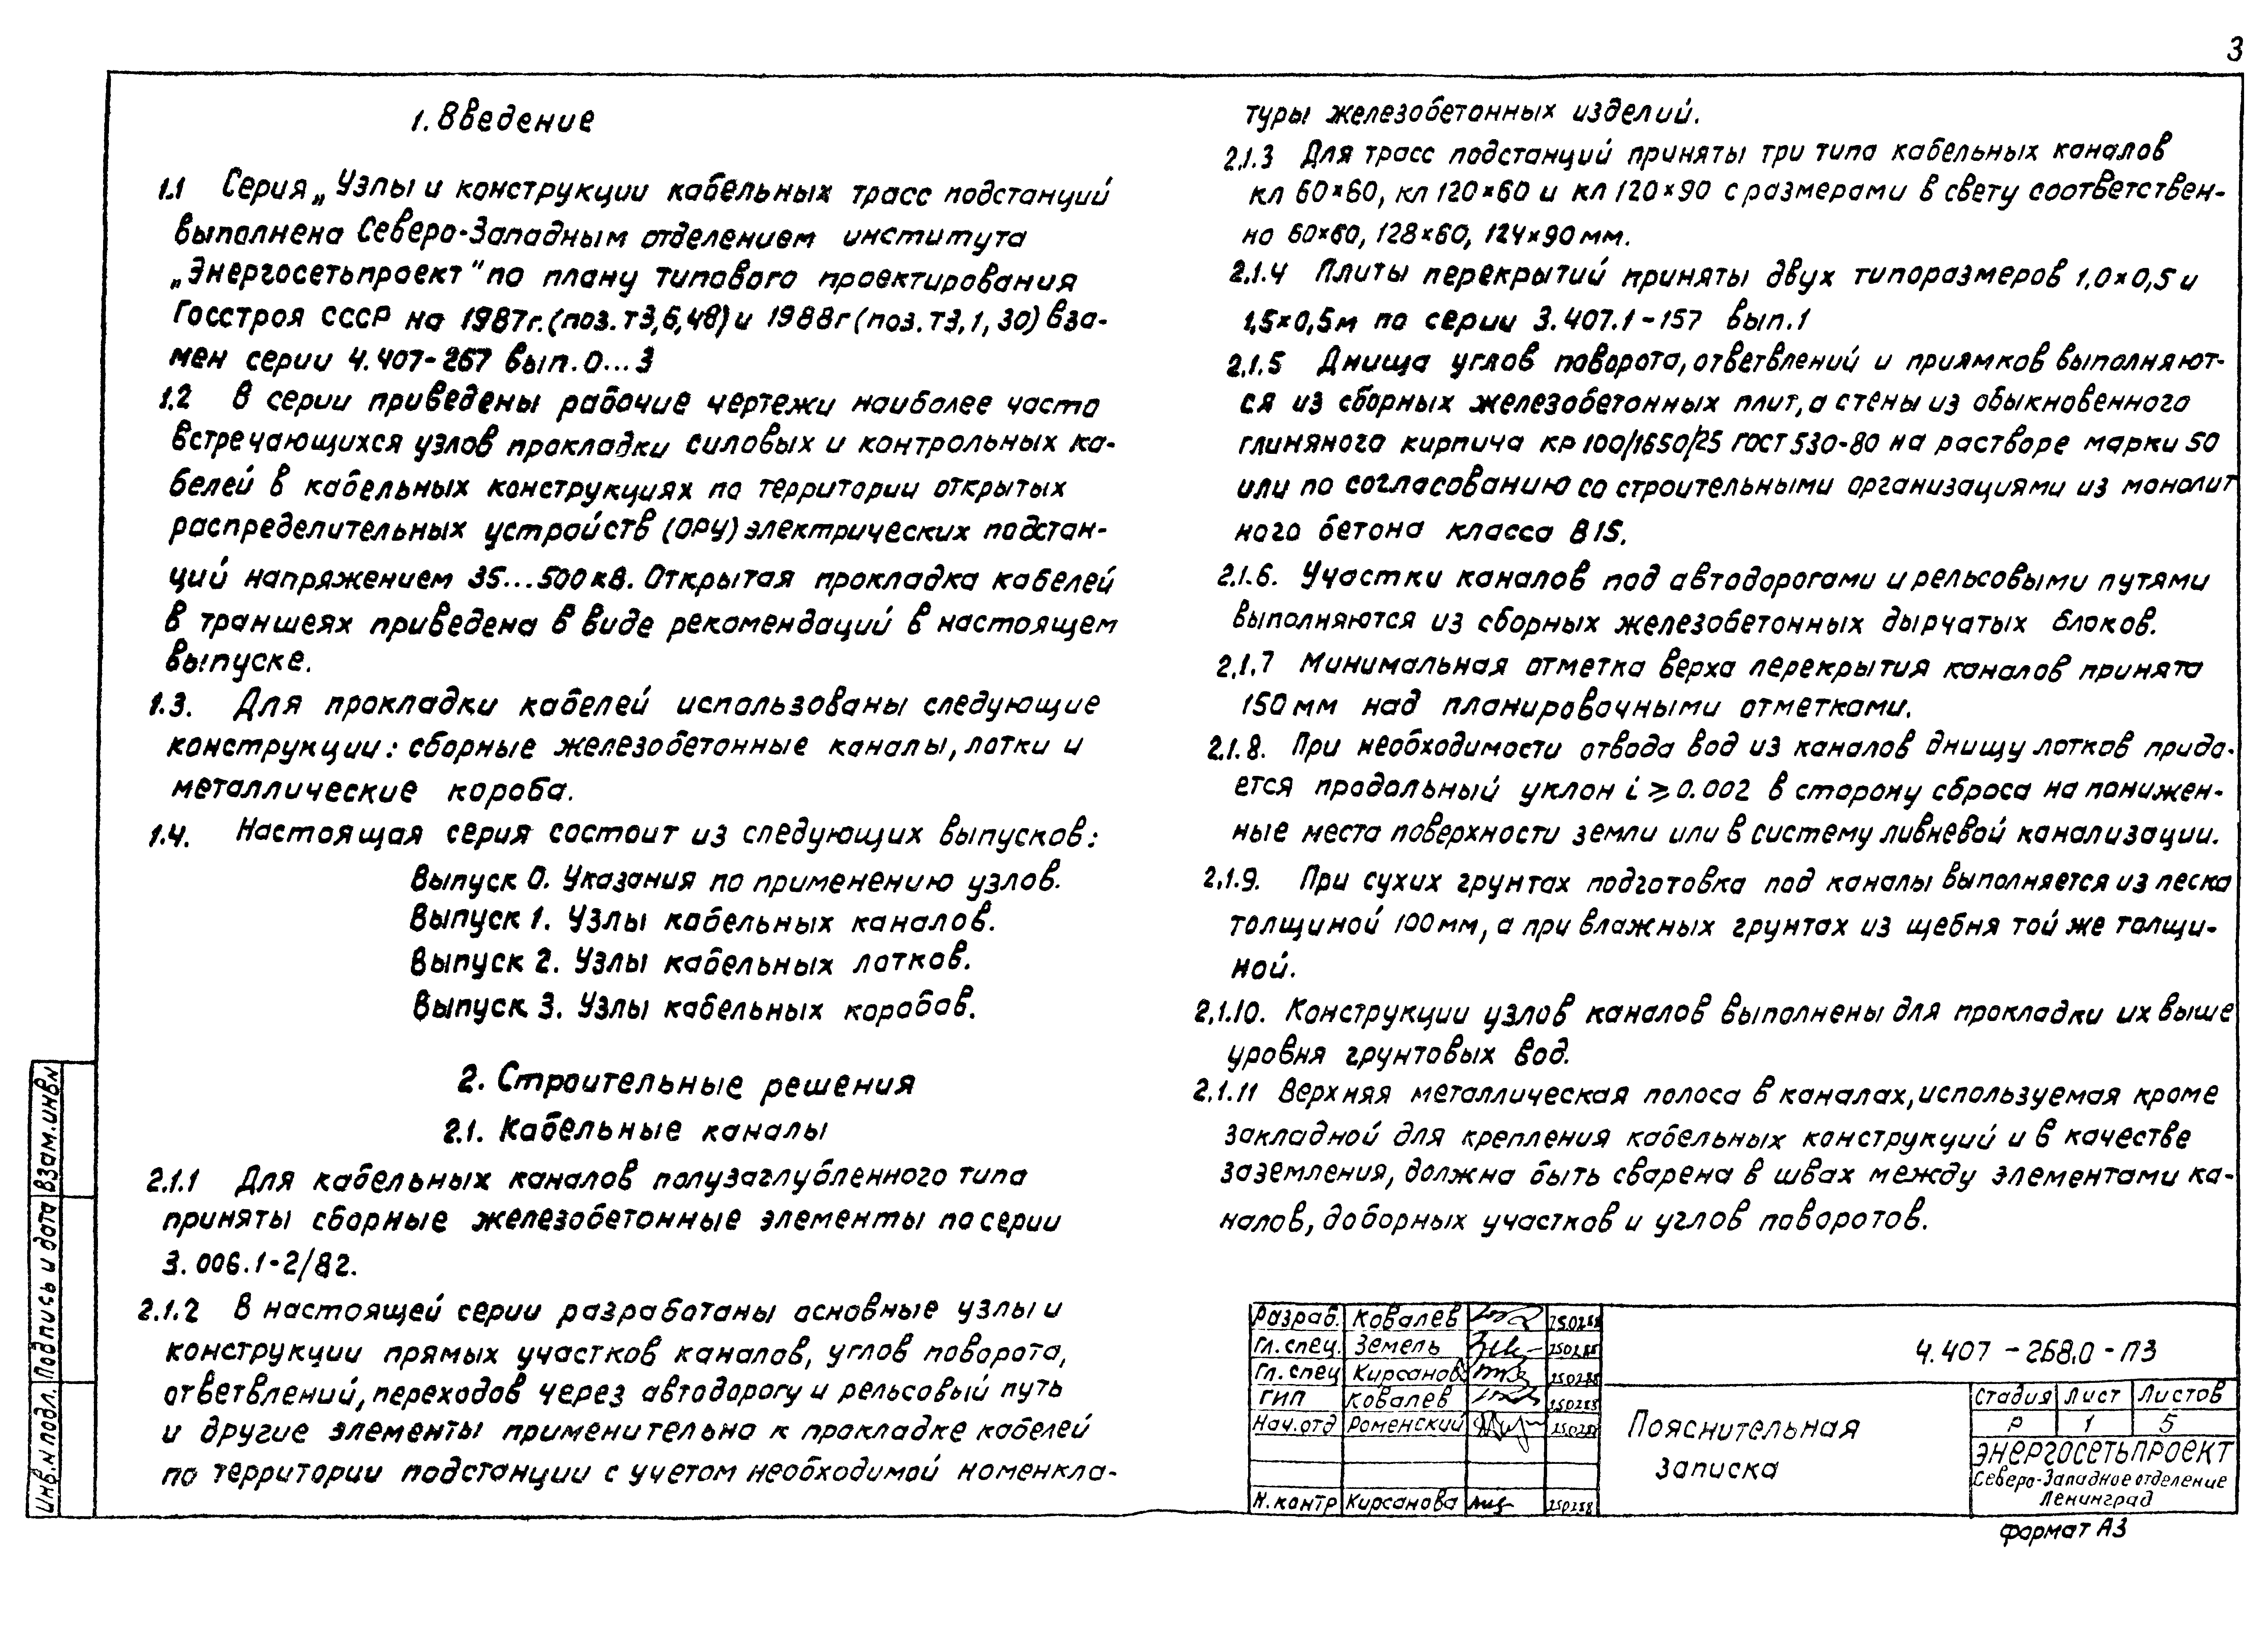 3
1. Введение
1.1 Серия „Узлы и конструкции кабельных трасс подстанций
выполнена Северо-Западным отделением института
„Энергосетьпроект" по плану типового проектирования
Госстроя СССР на 1987г. (поз. Т3,6,48) и 1988г (поз. Т3,1,30) вза-
мен серии 4.407-267 вып. 0...3
1.2 В серии приведены рабочие чертежи наиболее часто
встречающихся узлов прокладки силовых и контрольных ка-
белей в кабельных конструкциях по территории открытых
распределительных устройств (ОРУ) электрических подстан-
ций напряжением 35...500кв. Открытая прокладка кабелей
в траншеях приведена в виде рекомендаций в настоящем
выпуске.
1.3. Для прокладки кабелей использованы следующие
конструкции: сборные железобетонные каналы, лотки и
металлические короба.
1.4. Настоящая серия состоит из следующих выпусков:
Выпуск 0. Указания по применению узлов.
Выпуск 1. Узлы кабельных каналов.
Выпуск 2. Узлы кабельных лотков.
Выпуск 3. Узлы кабельных коробов.
2. Строительные решения
2.1. Кабельные каналы
2.1.1 Для кабельных каналов полузаглубленного типа
приняты сборные железобетонные элементы по серии
3.006.1-2/82.
2.1.2 В настоящей серии разработаны основные узлы и
конструкции прямых участков каналов, углов поворота,
ответвлений, переходов через автодорогу и рельсовый путь
и другие элементы применительно к прокладке кабелей
по территории подстанции с учетом необходимой номенкла-
туры железобетонных изделий.
2.1.3 Для трасс подстанций приняты три типа кабельных каналов
кл 60×60, кл 120×60 и кл 120×90 с размерами в свету соответствен-
но 60×60, 128×60, 124×90 мм.
2.1.4 Плиты перекрытий приняты двух типоразмеров 1,0×0,5 и
1,5×0,5м по серии 3.407.1-157 вып.1
2.1.5 Днища углов поворота, ответвлений и приямков выполняют-
ся из сборных железобетонных плит, а стены из обыкновенного
глиняного кирпича кр 100/1650/25 ГОСТ 530-80 на растворе марки 50
или по согласованию со строительными организациями из монолит
ного бетона класса В15.
2.1.6. Участки каналов под автодорогами и рельсовыми путями
выполняются из сборных железобетонных дырчатых блоков.
2.1.7 Минимальная отметка верха перекрытия каналов принята
150 мм над планировочными отметками.
2.1.8. При необходимости отвода вод из каналов днищу лотков прида-
ется продольный уклон i ⩾ 0.002 в сторону сброса на понижен-
ные места поверхности земли или в систему ливневой канализации.
2.1.9. При сухих грунтах подготовка под каналы выполняется из песка
толщиной 100мм, а при влажных грунтах из щебня той же толщи-
ной.
2.1.10. Конструкции узлов каналов выполнены для прокладки их выше
уровня грунтовых вод.
2.1.11 Верхняя металлическая полоса в каналах, используемая кроме
закладной для крепления кабельных конструкций и в качестве
заземления, должна быть сварена в швах между элементами ка-
налов, доборных участков и углов поворотов.
Разраб. Ковалев 250288
Гл. спец. Земель 250288
Гл. спец Кирсанов 250288
ГИП Ковалев 250288
Нач. отд Роменский 250288
Н. контр Кирсанова 250288
4.407-268.0-ПЗ
Пояснительная
записка
Стадия Лист Листов
Р 1 5
ЭНЕРГОСЕТЬПРОЕКТ
Северо-Западное отделение
Ленинград
формат А3
Инв. N подл. Подпись и дата Взам. инв N